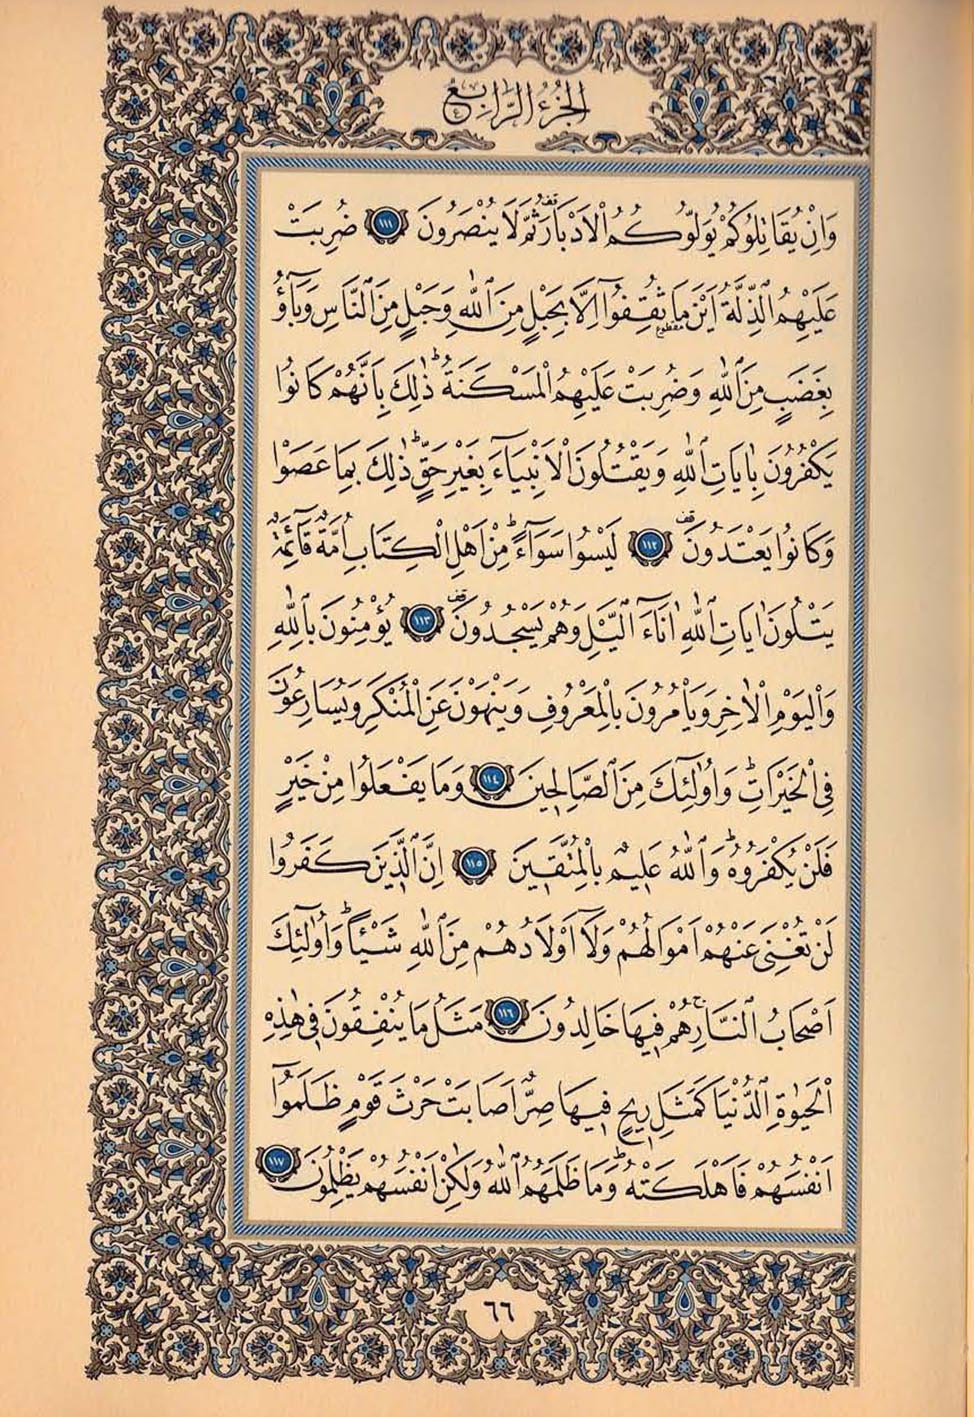 الجزء الرابع
وَاِنْ يُقَاتِلُوكُمْ يُوَلُّوكُمُ الْاَدْبَارَ ثُمَّ لَا يُنْصَرُونَ ﴿١١١﴾ ضُرِبَتْ
عَلَيْهِمُ الذِّلَّةُ اَيْنَ مَا ثُقِفُٓوا اِلَّا بِحَبْلٍ مِنَ اللّٰهِ وَحَبْلٍ مِنَ النَّاسِ وَبَٓاؤُ
بِغَضَبٍ مِنَ اللّٰهِ وَضُرِبَتْ عَلَيْهِمُ الْمَسْكَنَةُۜ ذٰلِكَ بِاَنَّهُمْ كَانُوا
يَكْفُرُونَ بِاٰيَاتِ اللّٰهِ وَيَقْتُلُونَ الْاَنْبِيَٓاءَ بِغَيْرِ حَقٍّۜ ذٰلِكَ بِمَا عَصَوْا
وَكَانُوا يَعْتَدُونَ ﴿١١٢﴾ لَيْسُوا سَوَٓاءًۜ مِنْ اَهْلِ الْكِتَابِ اُمَّةٌ قَٓائِمَةٌ
يَتْلُونَ اٰيَاتِ اللّٰهِ اٰنَٓاءَ الَّيْلِ وَهُمْ يَسْجُدُونَ ﴿١١٣﴾ يُؤْمِنُونَ بِاللّٰهِ
وَالْيَوْمِ الْاٰخِرِ وَيَأْمُرُونَ بِالْمَعْرُوفِ وَيَنْهَوْنَ عَنِ الْمُنْكَرِ وَيُسَارِعُونَ
فِي الْخَيْرَاتِۜ وَاُو۬لٰٓئِكَ مِنَ الصَّالِحِينَ ﴿١١٤﴾ وَمَا يَفْعَلُوا مِنْ خَيْرٍ
فَلَنْ يُكْفَرُوهُۜ وَاللّٰهُ عَلِيمٌ بِالْمُتَّقِينَ ﴿١١٥﴾ اِنَّ الَّذِينَ كَفَرُوا
لَنْ تُغْنِيَ عَنْهُمْ اَمْوَالُهُمْ وَلَٓا اَوْلَادُهُمْ مِنَ اللّٰهِ شَيْـًٔاۜ وَاُو۬لٰٓئِكَ
اَصْحَابُ النَّارِۚ هُمْ فِيهَا خَالِدُونَ ﴿١١٦﴾ مَثَلُ مَا يُنْفِقُونَ فِي هٰذِهِ
الْحَيٰوةِ الدُّنْيَا كَمَثَلِ رِيحٍ فِيهَا صِرٌّ اَصَابَتْ حَرْثَ قَوْمٍ ظَلَمُٓوا
اَنْفُسَهُمْ فَاَهْلَكَتْهُۜ وَمَا ظَلَمَهُمُ اللّٰهُ وَلٰكِنْ اَنْفُسَهُمْ يَظْلِمُونَ ﴿١١٧﴾
٦٦